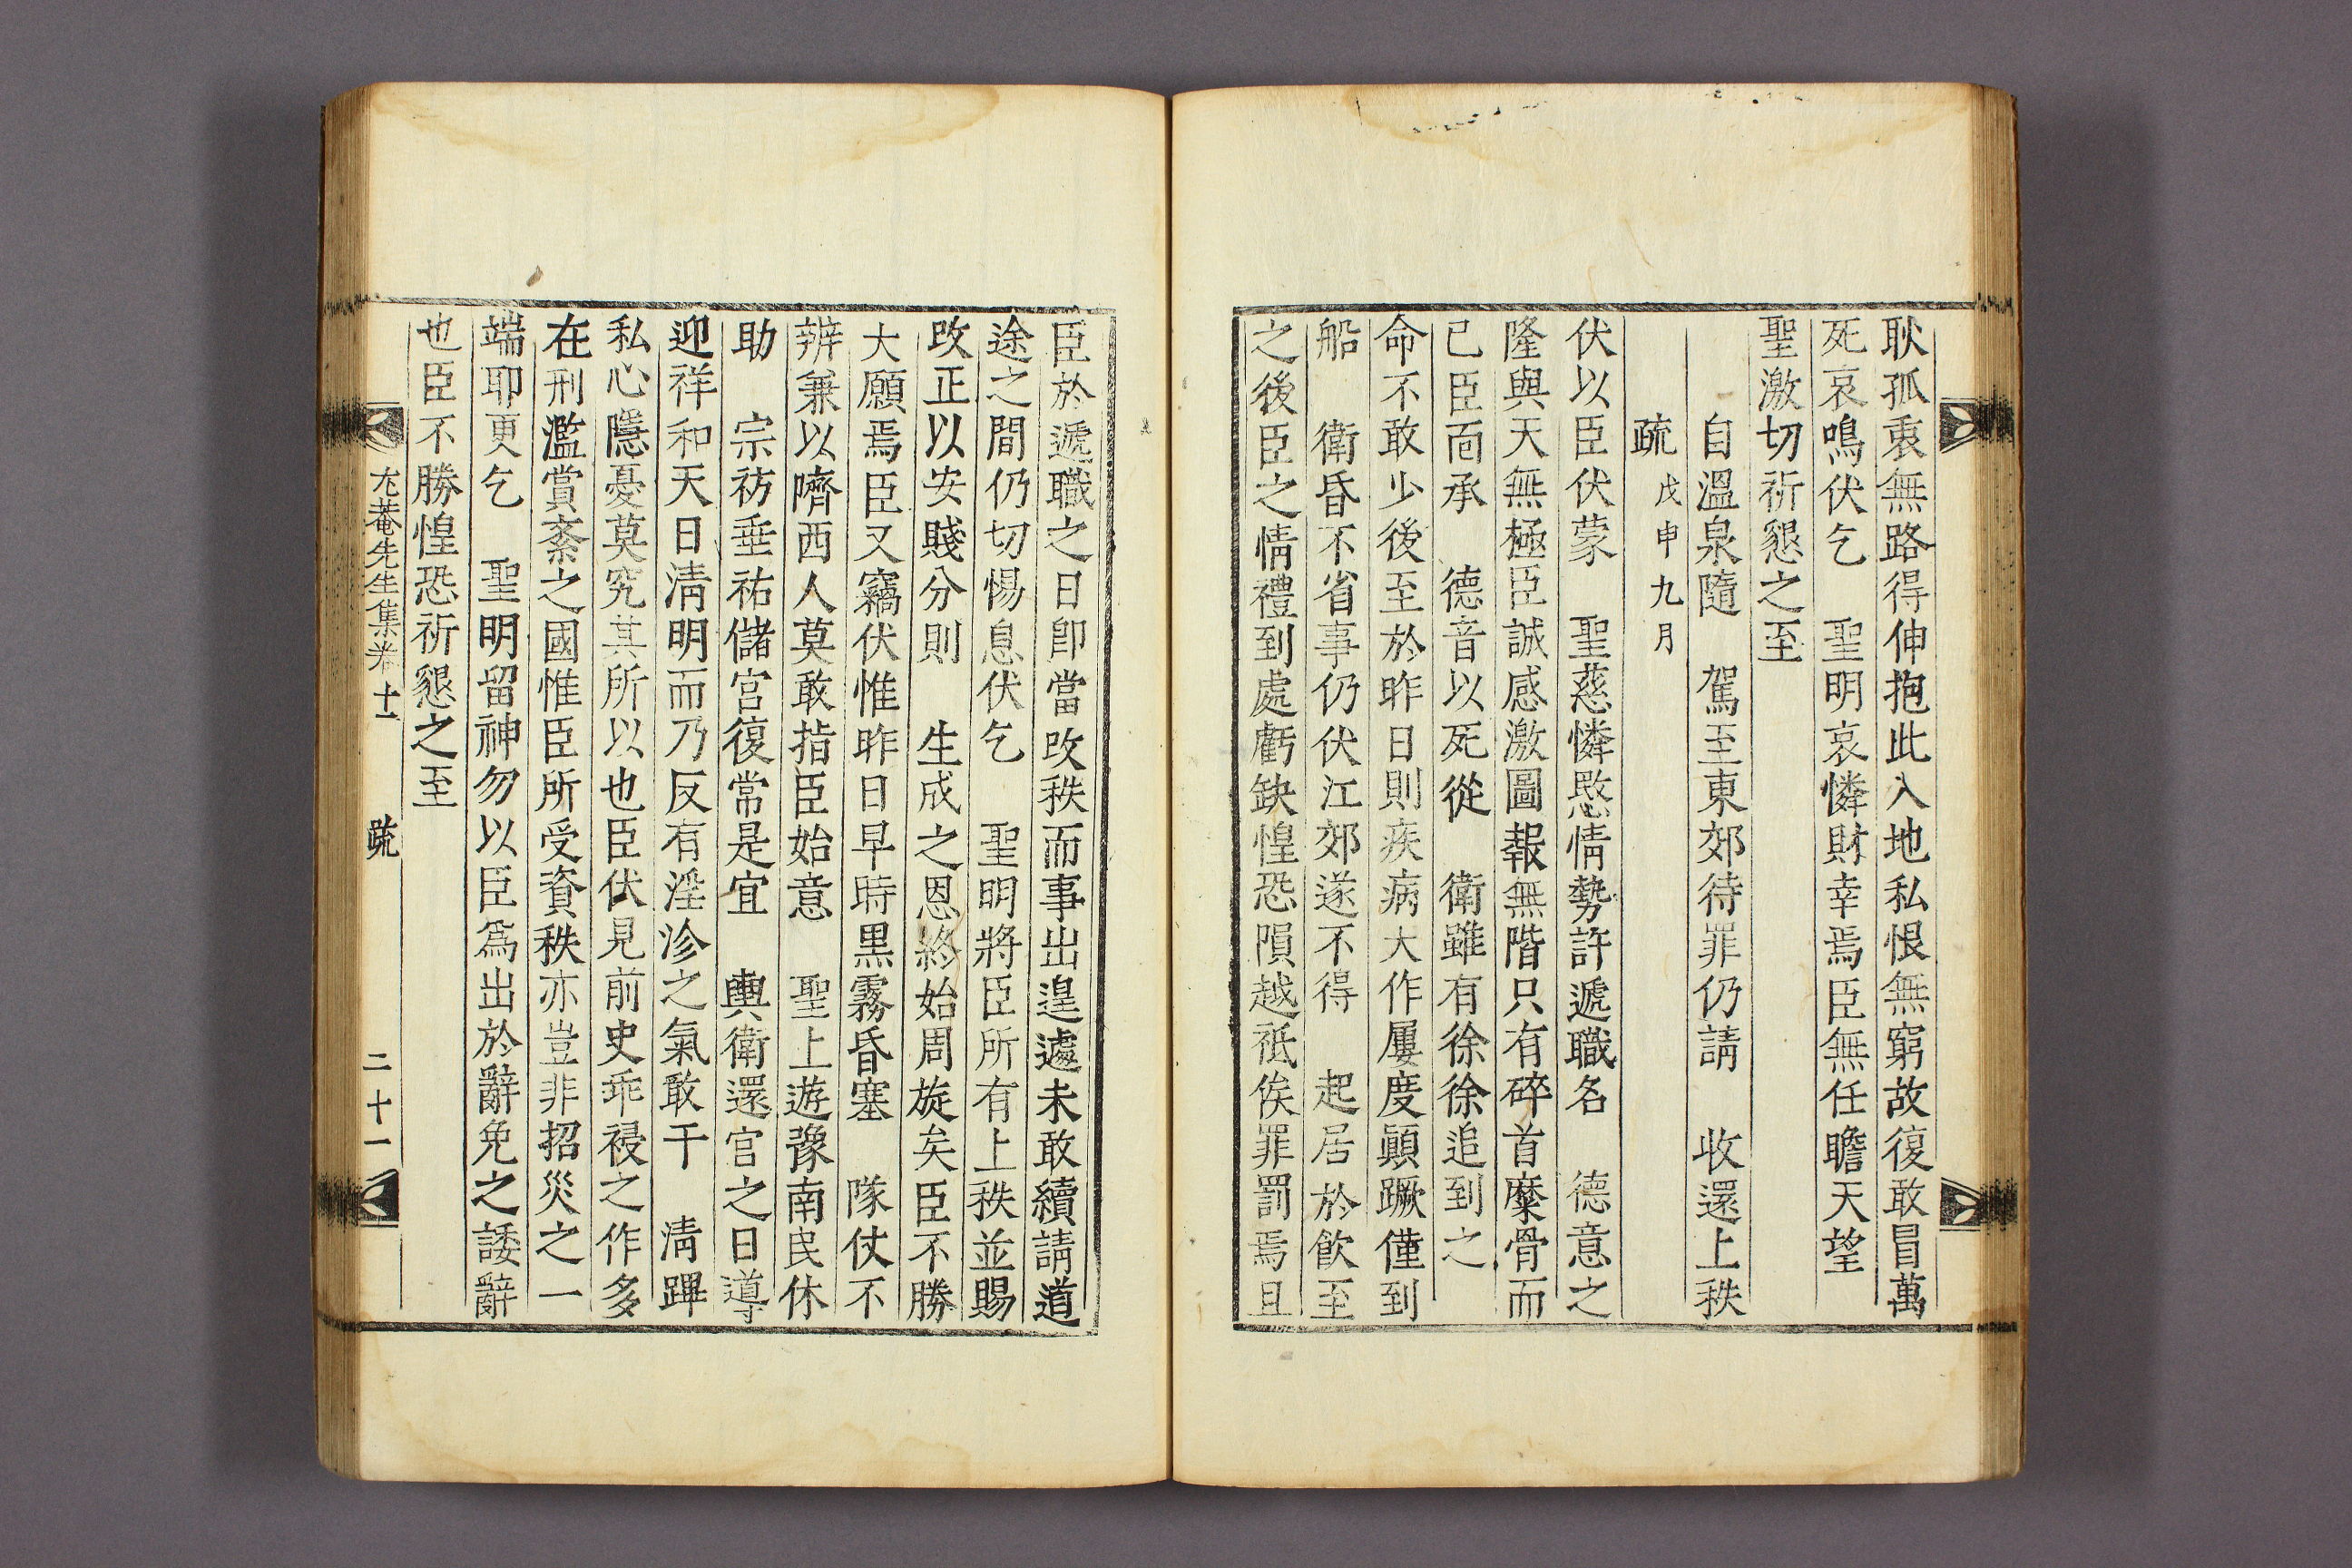 耿孤衷無路得伸抱此入地私恨無窮故復敢冒萬
死哀鳴伏乞 聖明哀憐財幸焉臣無任瞻天望
聖激切祈懇之至
自溫泉隨 駕至東郊待罪仍請 收還上秩
疏 戊申九月
伏以臣伏蒙 聖慈憐愍情勢許遞職名 德意之
隆與天無極臣誠感激圖報無階只有碎首糜骨而
已臣面承 德音以死從 衛雖有徐徐追到之
命不敢少後至於昨日則疾病大作屢度顚蹶僅到
船 衛昏不省事仍伏江郊遂不得 起居於飮至
之後臣之情禮到處虧缺惶恐隕越祗俟罪罰焉且
臣於遞職之日卽當改秩而事出遑遽未敢續請道
途之間仍切惕息伏乞 聖明將臣所有上秩並賜
改正以安賤分則 生成之恩終始周旋矣臣不勝
大願焉臣又竊伏惟昨日早時黑霧昏塞 隊仗不
辨兼以隮西人莫敢指臣始意 聖上遊豫南民休
助 宗祊垂祐儲宮復常是宜 輿衛還官之日導
迎祥和天日淸明而乃反有淫沴之氣敢干 淸蹕
私心隱憂莫究其所以也臣伏見前史乖祲之作多
在刑濫賞紊之國惟臣所受資秩亦豈非招災之一
端耶更乞 聖明留神勿以臣爲出於辭免之諉辭
也臣不勝惶恐祈懇之至
尤菴先生集卷十一 疏 二十一